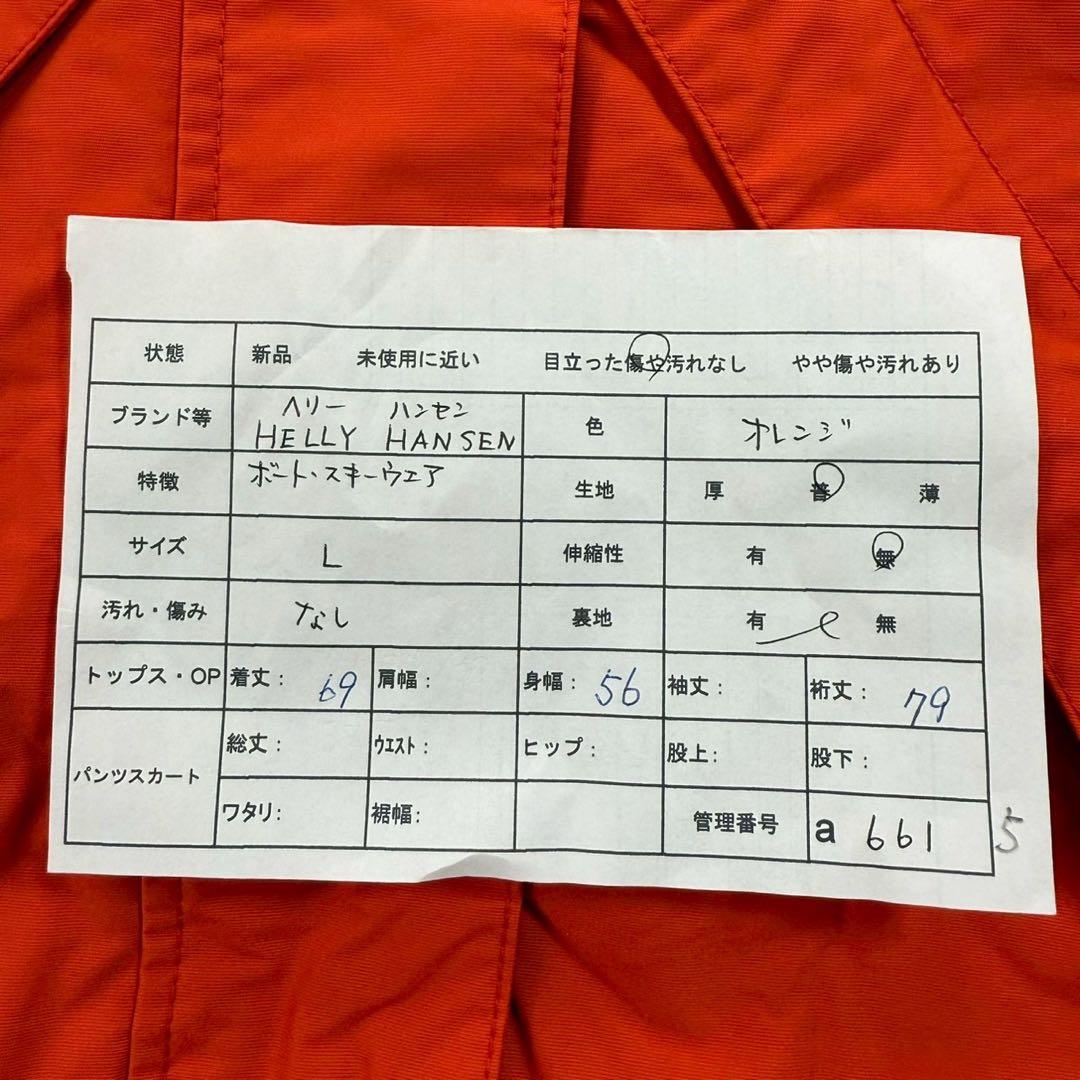 状態 新品 未使用に近い 目立った傷や汚れなし やや傷や汚れあり
ブランド等 ヘリー ハンセン
HELLY HANSEN 色 オレンジ
特徴 ボート・スキーウエア 生地 厚 普 薄
サイズ L 伸縮性 有 無
汚れ・傷み なし 裏地 有 無
トップス・OP 着丈: 69 肩幅: 身幅: 56 袖丈: 裄丈: 79
パンツスカート 総丈: ウエスト: ヒップ: 股上: 股下:
ワタリ: 裾幅: 管理番号 a 661 5